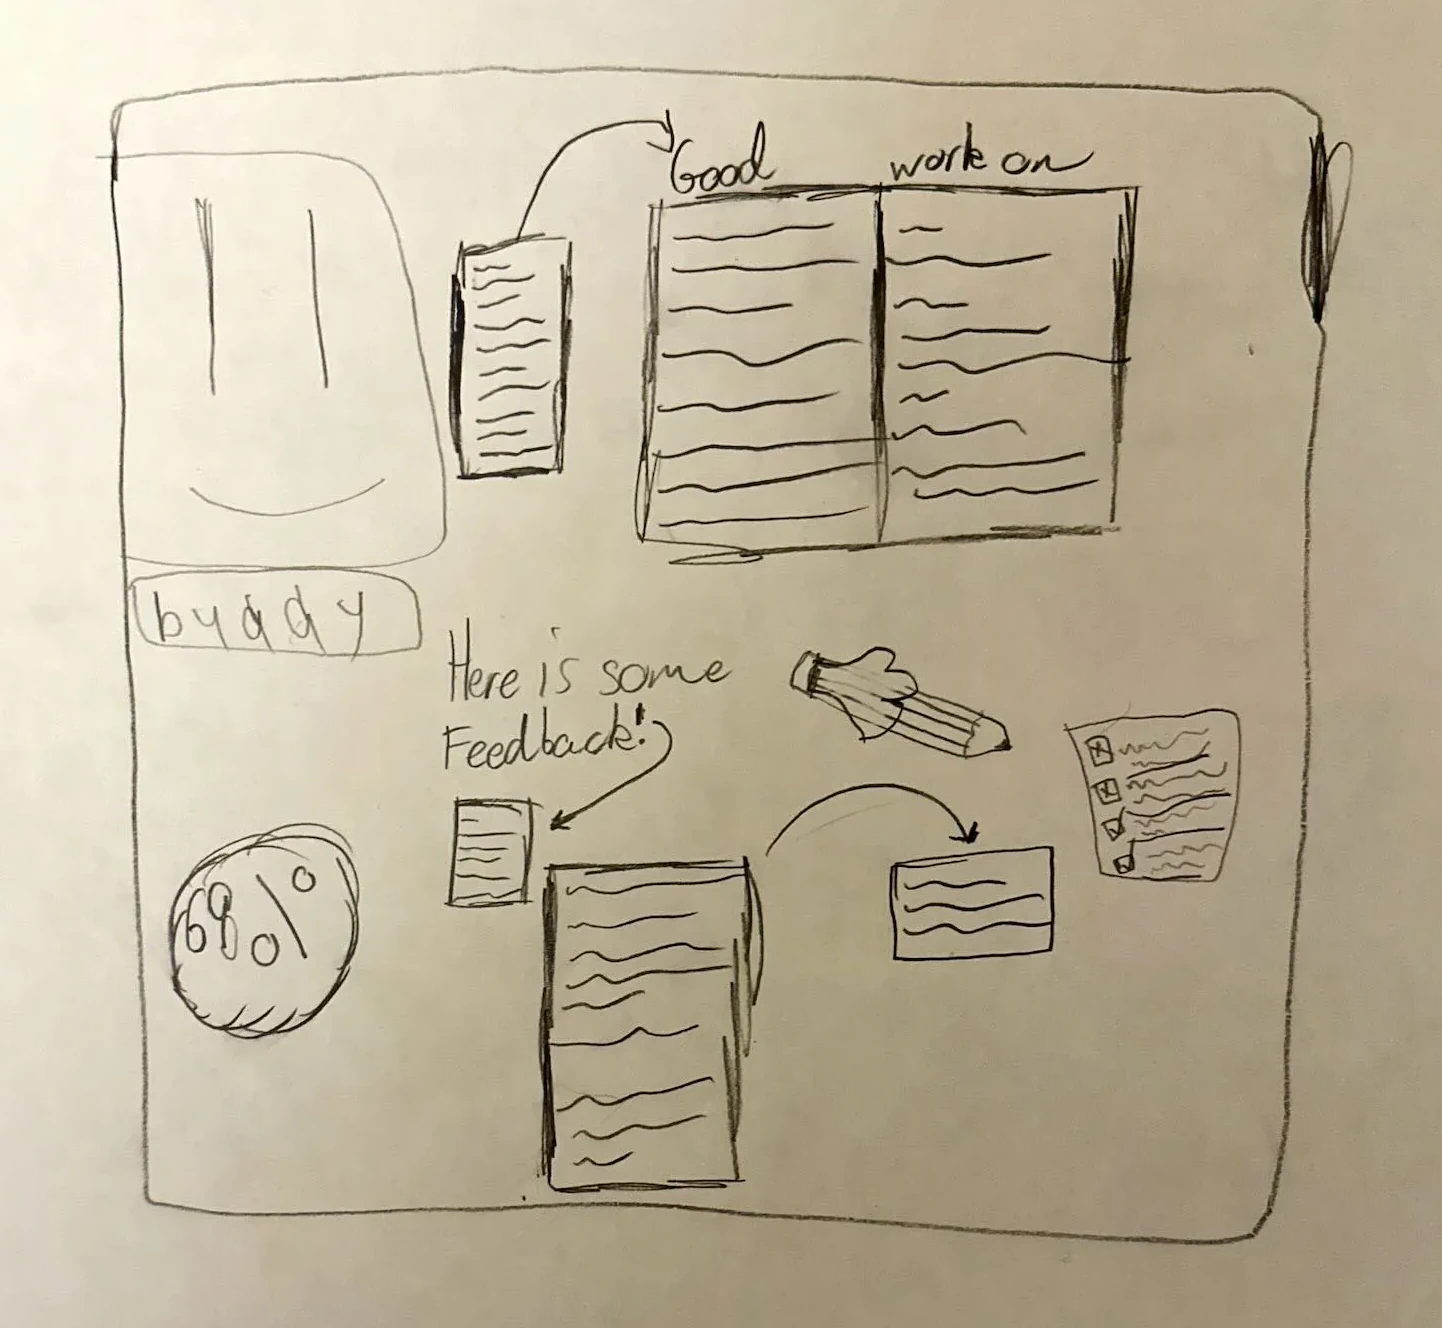 Good work on
buddy
Here is some
Feedback!
69%